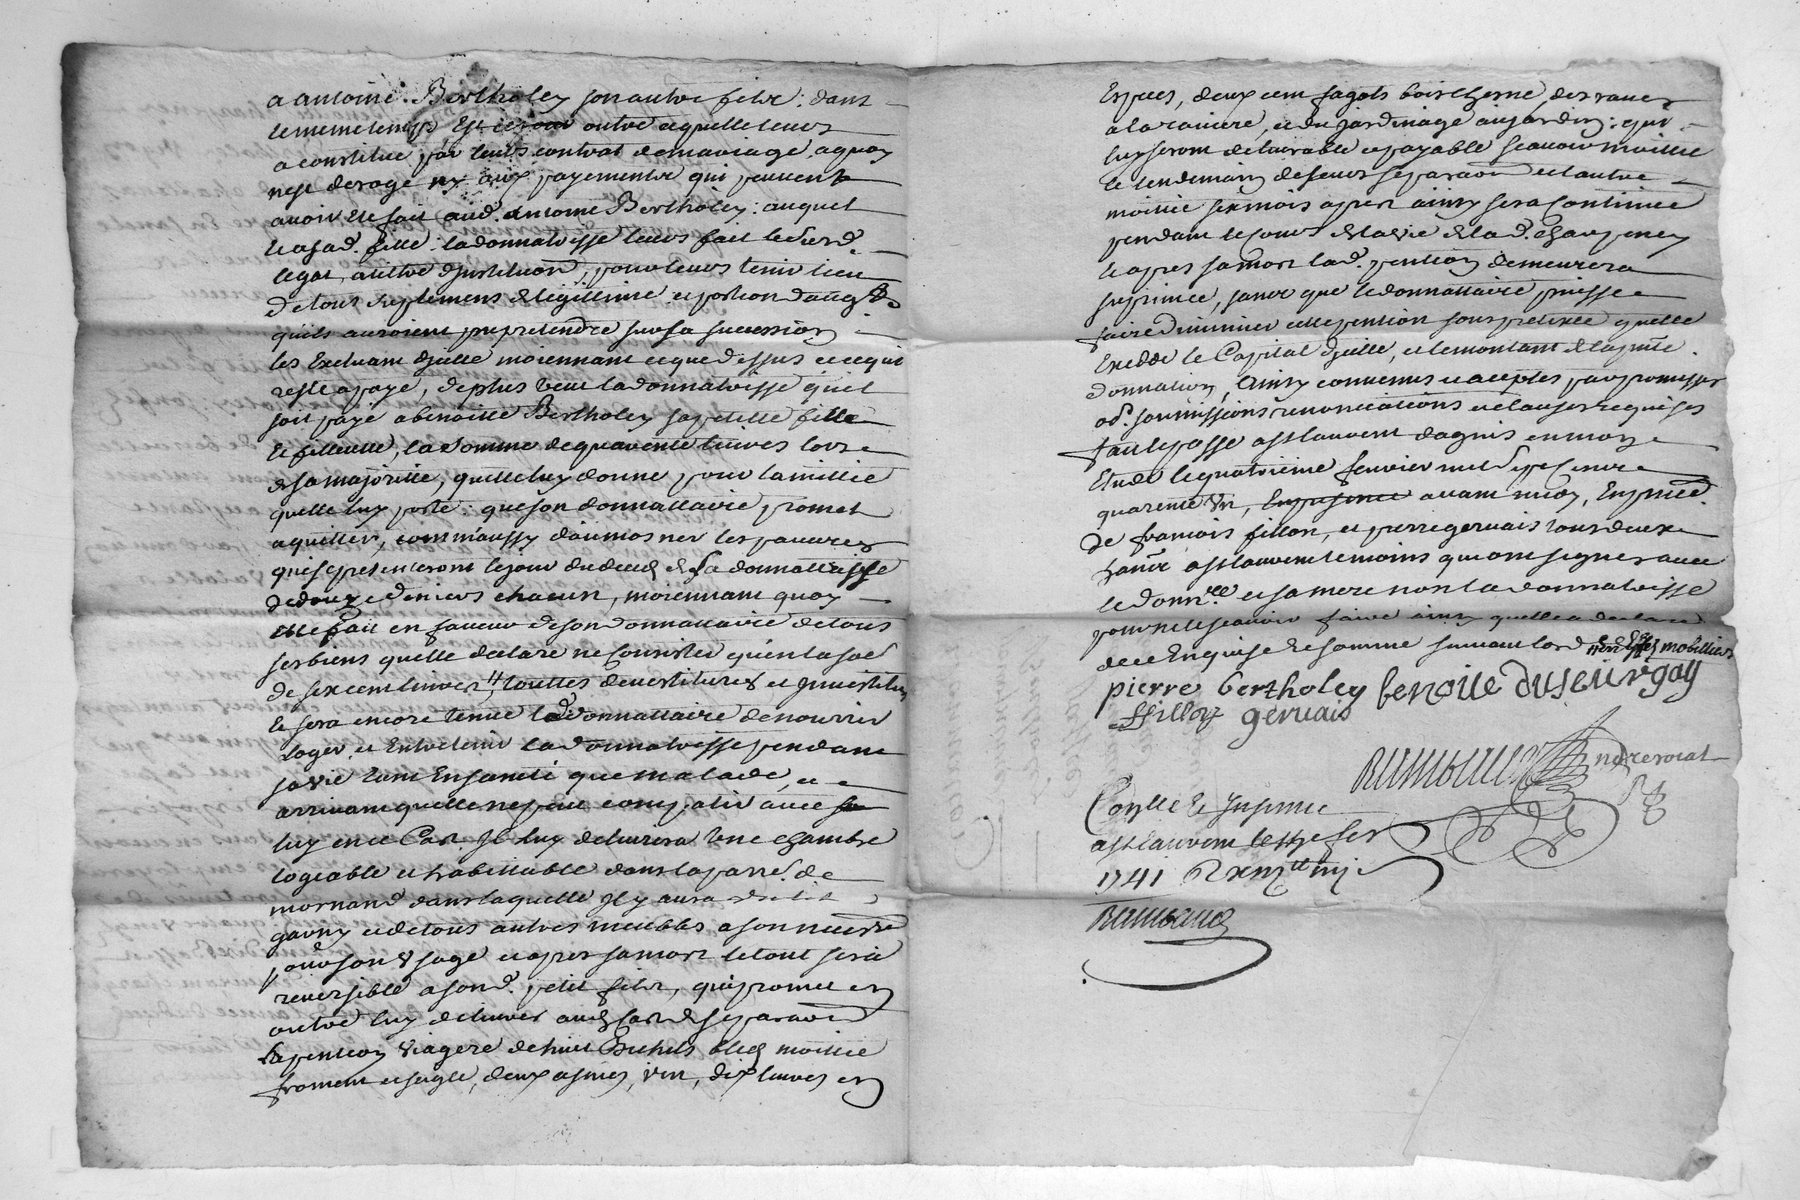 a antoine Bertholey son autre filz : dans
le meme temps outre ce quelle leurs
a constitue par leurs contrat de mariage, a quoy
nest deroge ny aux payements qui peuvent
avoir ete fait aud. antoine Bertholey : auquel
et a sad. fille : la donnatrisse leurs fait le surd.
legat a titre d'jnstitution, pour leurs tenir lieu
de tous suplemens de legittime et portion
quils auroient pu pretendre sur sa succession
les Excluant d'jcelle moiennant ce que dessus et ce qui
reste a paye, de plus veut la donnatrisse qu'il
soit paye a benoitte Bertholey sa petitte fille
et filleulle, la somme de quarente livres lors
de sa majoritte, quelle luy donne pour lamittie
quelle luy porte : que son donnattaire promet
aquitter, comm'aussy daumosner les pauvres
qui se presenteront le jour du deces de la donnattrisse
de douze deniers chacun, moiennant quoy
elle fait en faveur de son donnattaire de tous
ses biens quelle declare ne consister qu'en la so.e
de six cent livres, touttes devestitures et jnvestitures
et sera encore tenue le donnattaire de nourrir
loger et Entretenir la donnatrisse pendant
sa vie tant En santé que malade, et
arrivant quelle ne peut compatir avec
luy en ce Cas jl luy delivrera une chambre
logeable et habittable dans la parr. de
mornand dans laquelle jl y aura un lit
garny et de tous autres meubles a son necess.re
pour son usage et apres sa mort le tout sera
reversible a son d. petit filz, qui promet en
outre luy delivrer aud. cas de separaon
la pention viagere de huit Bichets bled moittie
froment et segle, deux asnées, vin, dix livres en
Especes, deux cent fagots bois chesne, des raves
a la raviere, et du jardinage au jardin : qui
luy seront delivrable et payable scavoir moittie
le lendemain de leurs separaon et l'autre
moittie six mois apres ainsy sera continue
pendant le cours de la vie de lad.
et apres sa mort lad. pention demeurera
suprimée, sans que le donnattaire puisse
faire diminuer cette pention sous pretexte quelle
Excede le Capital d'jcelle, et le montant de la pnte
donnation, Ainsy convenus et acceptes par promesses
obl. soumissions renonciations et clauses requises
fait et passe a st laurent dagnis en mon
Etude le quatorième fevrier mil sept cent
quarente un, avant midy, En pnce
de francois fillon, et pierre gervais tous deux
de st laurent temoins qui ont signes avec
le donn.re et sa mere non la donnatrisse
pour ne le scavoir faire ainsy quelle a declaré
de ce Enquise et somme suivant lord. mobilliers
pierre bertholey benoite duseurgay
ffillon gervais
Rambaud
Con.lle et jnsinué
a st laurent le
1741
Rambaud